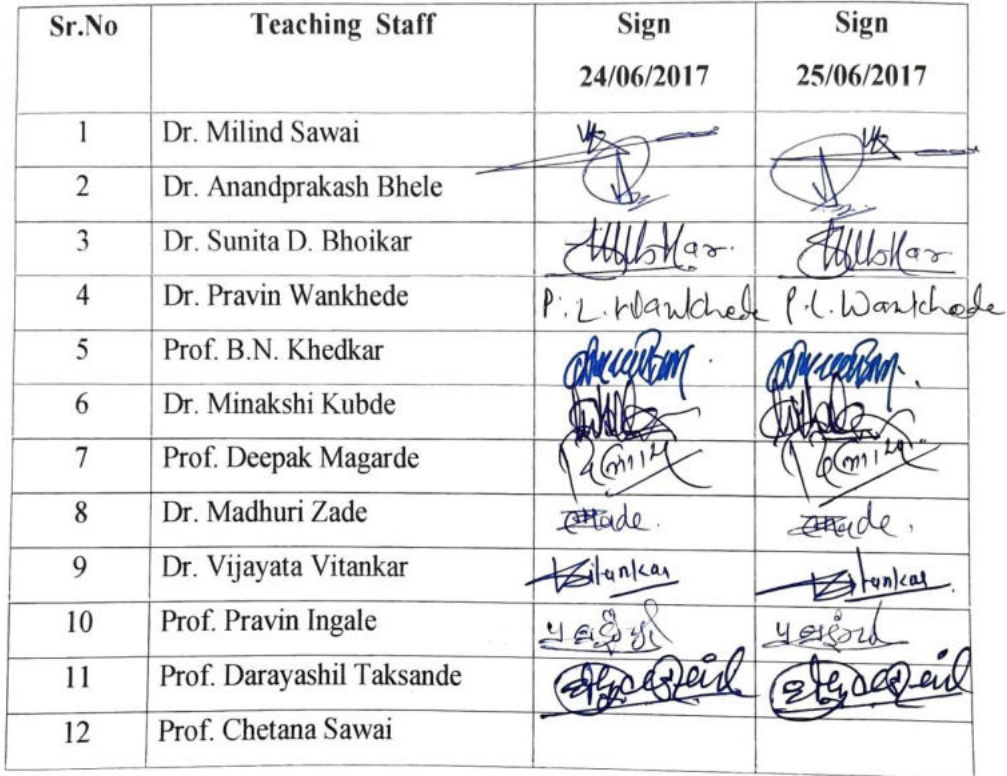 Sr.No Teaching Staff Sign Sign
24/06/2017 25/06/2017
1 Dr. Milind Sawai
2 Dr. Anandprakash Bhele
3 Dr. Sunita D. Bhoikar
4 Dr. Pravin Wankhede P. L. Wankhede P. L. Wankhede
5 Prof. B.N. Khedkar
6 Dr. Minakshi Kubde
7 Prof. Deepak Magarde
8 Dr. Madhuri Zade
9 Dr. Vijayata Vitankar Vitankar Vitankar
10 Prof. Pravin Ingale
11 Prof. Darayashil Taksande
12 Prof. Chetana Sawai